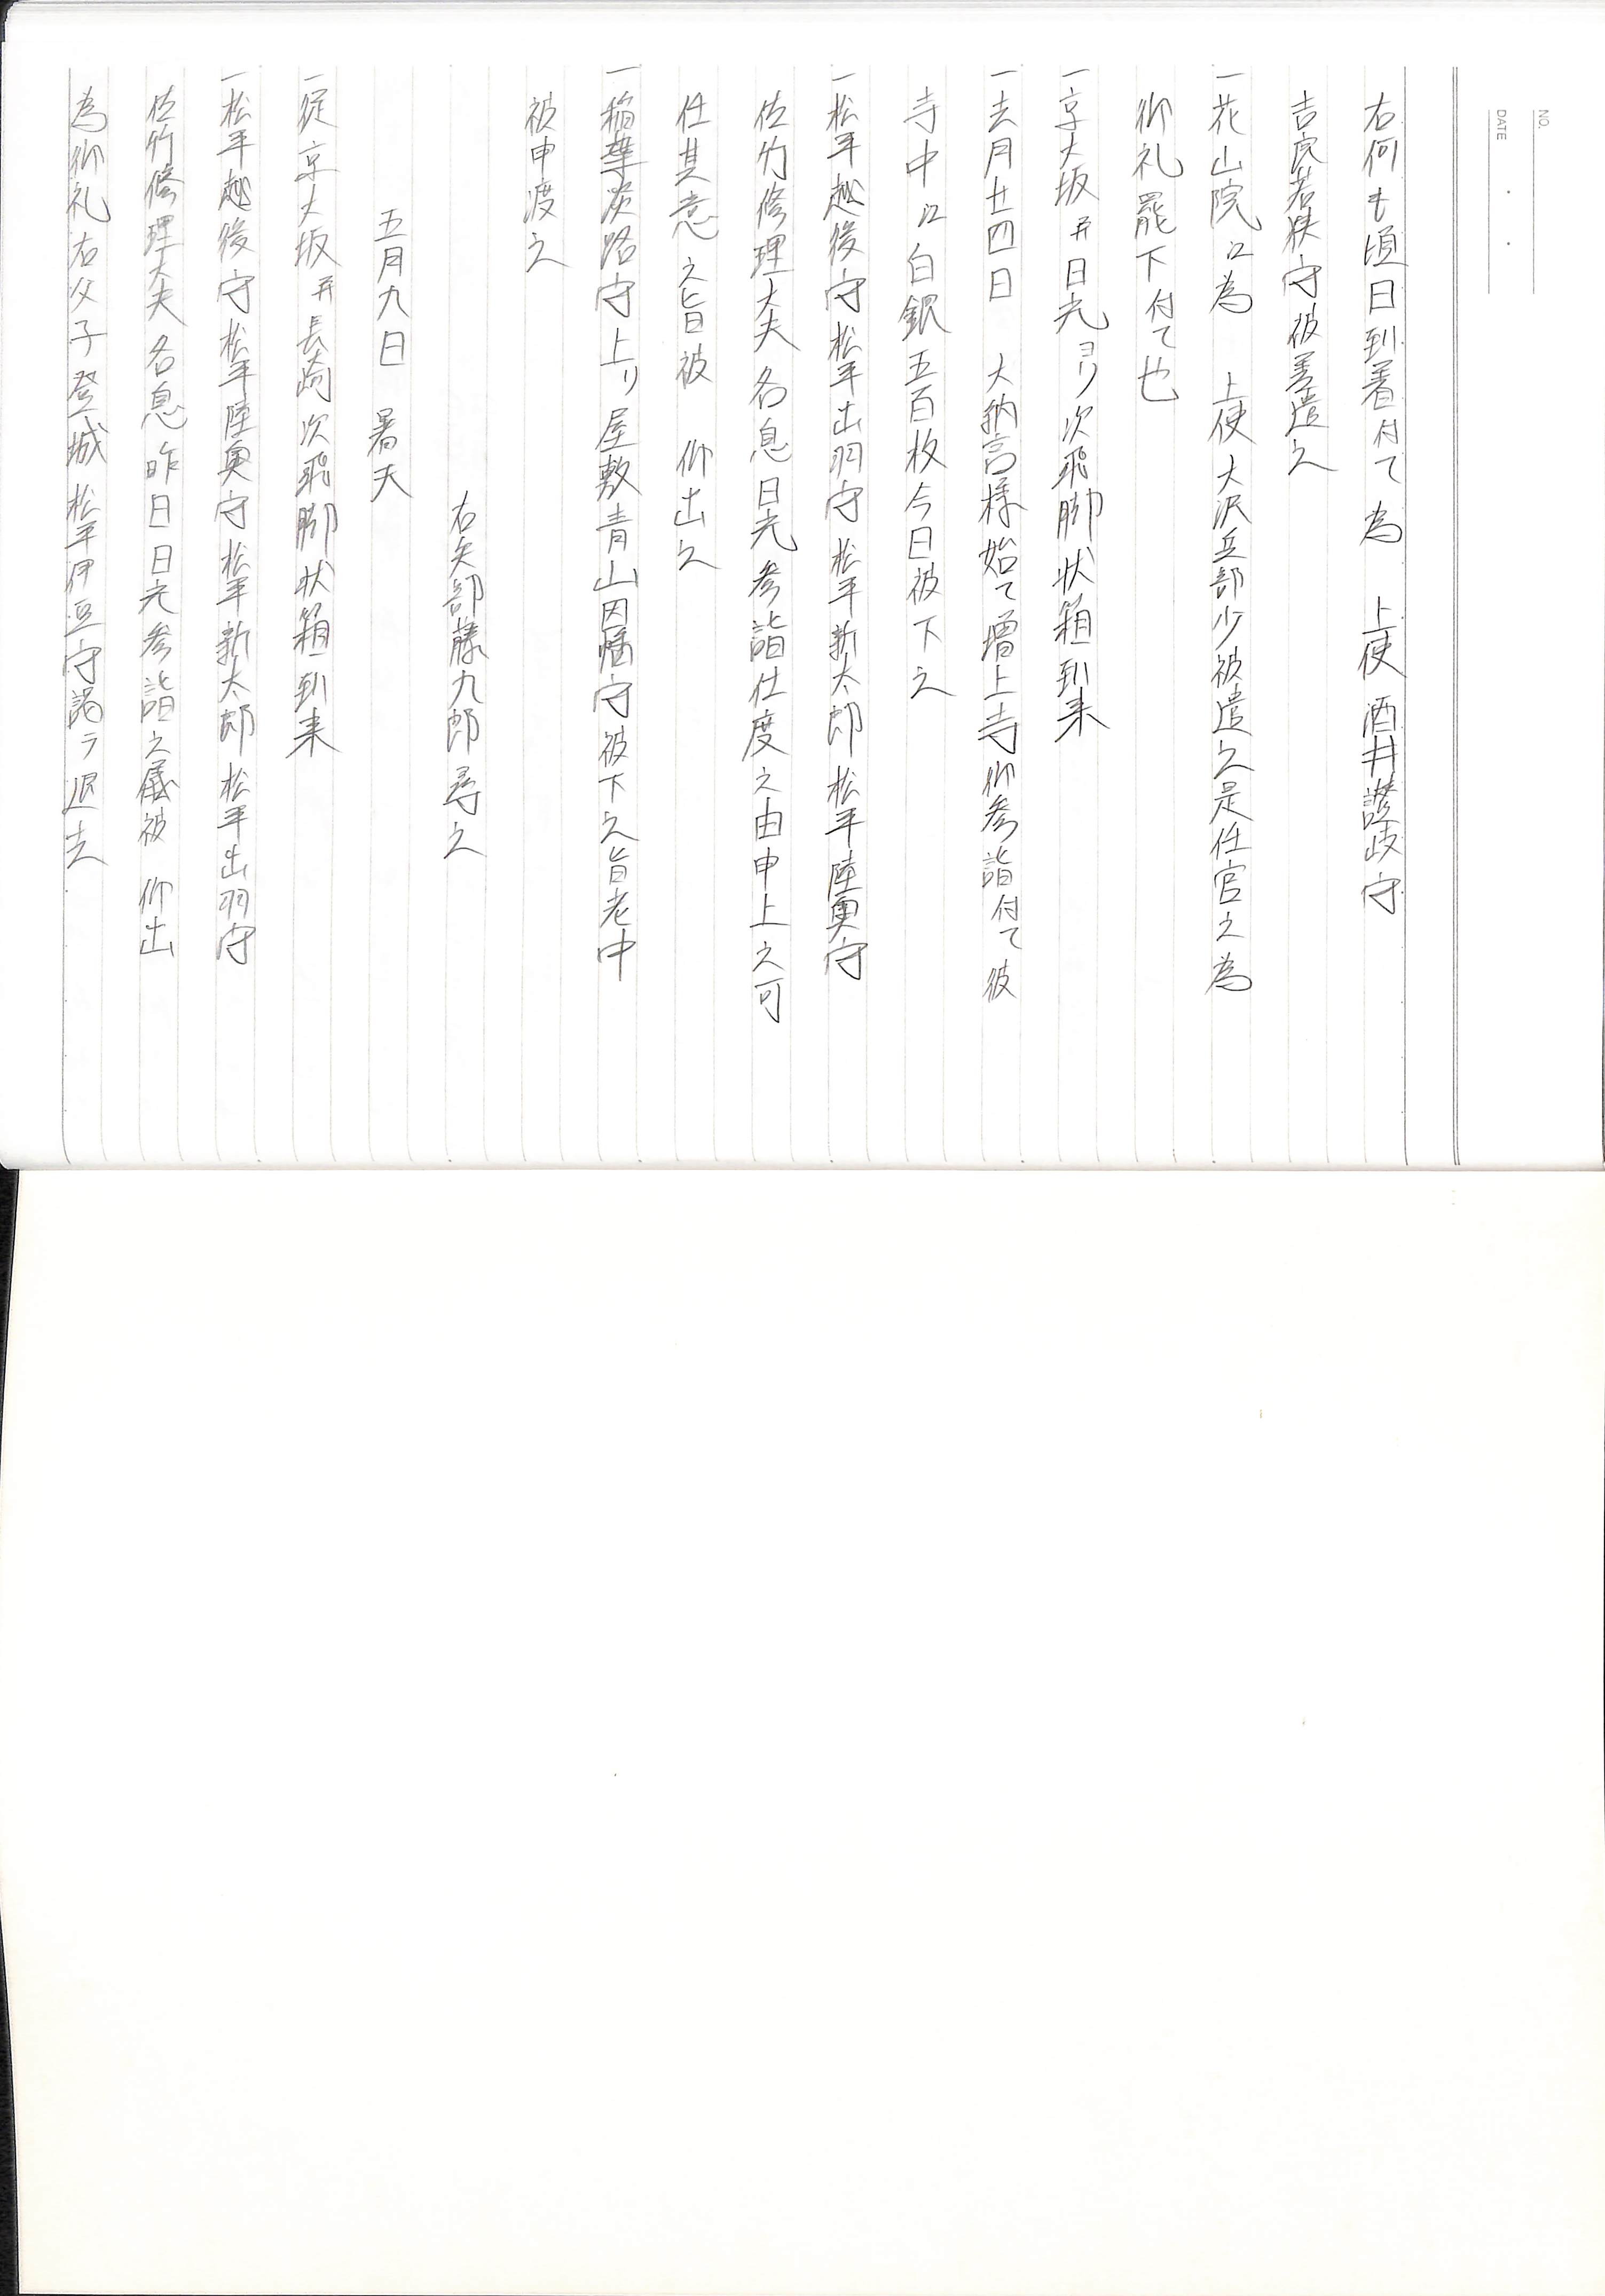 NO.
DATE
右何も頃日到着付て為　上使酒井讃岐守
吉良若狭守被差遣之
一花山院江為　上使大沢兵部少被遣之是任官之為
御礼罷下付て也
一京大坂并日光ヨリ次飛脚状箱到来
一去月廿四日　大納言様始て増上寺御参詣付て彼
寺中江白銀五百枚今日被下之
一松平越後守松平出羽守松平新太郎松平陸奥守
佐竹修理大夫各息日光参詣仕度之由申上之可
任其意之旨被　仰出之
一稲葉淡路守上リ屋敷青山因幡守被下之旨老中
被申渡之
右矢部藤九郎尋之
五月九日　暑天
一従京大坂并長崎次飛脚状箱到来
一松平越後守松平陸奥守松平新太郎松平出羽守
佐竹修理大夫各息昨日日光参詣之儀被　仰出
為御礼右父子登城松平伊豆守謁ラ退去